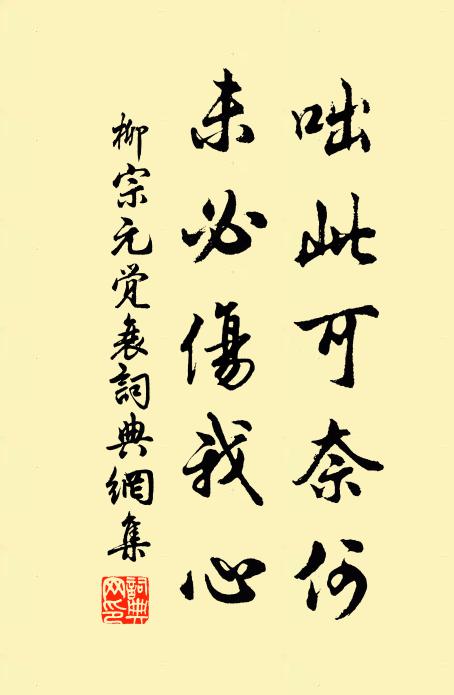 咄此可奈何
未必傷我心
柳宗元觉衰詞典網集
詞典网印